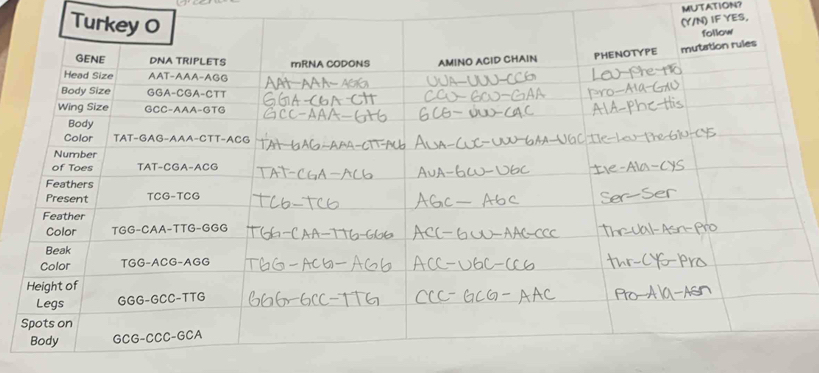 Turkey O
MUTATION?
(Y/N) IF YES,
follow
mutation rules
GENE DNA TRIPLETS mRNA CODONS AMINO ACID CHAIN PHENOTYPE
Head Size AAT-AAA-AGG AAT-AAA-AGG UUA-UUU-CCG Leu-Phe-
Body Size GGA-CGA-CTT GGA-CGA-CTT CCU-GCU-GAA Pro-Ala-GlU
Wing Size GCC-AAA-GTG GCC-AAA-GTG GCG-UUU-CAC AlA-Phe-His
Body
Color TAT-GAG-AAA-CTT-ACG TAT-GAG-AAA-CTT-ACG AUA-CUC-UUU-GAA-UGC Ile-Leu-Phe-Glu-CYS
Number
of Toes TAT-CGA-ACG TAT-CGA-ACG AUA-GCU-UGC Ile-Ala-CYS
Feathers
Present TCG-TCG TCG-TCG AGC-AGC Ser-Ser
Feather
Color TGG-CAA-TTG-GGG TGG-CAA-TTG-GGG ACC-GUU-AAC-CCC Thr-Val-Asn-Pro
Beak
Color TGG-ACG-AGG TGG-ACG-AGG ACC-UGC-CCG thr-CYS-Pro
Height of
Legs GGG-GCC-TTG GGG-GCC-TTG CCC-GCG-AAC Pro-Ala-Asn
Spots on
Body GCG-CCC-GCA